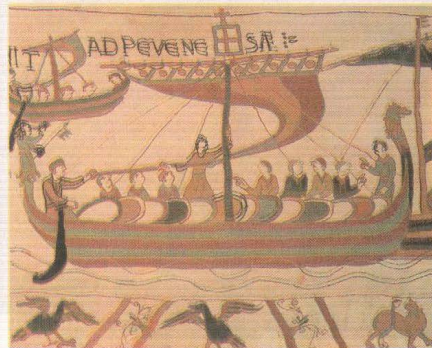 IT AD PEVENE SÆ :